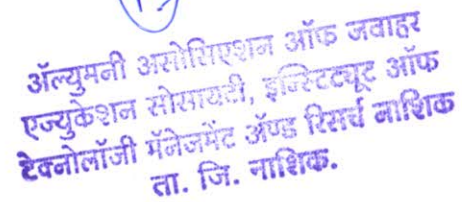 ॲल्युमनी असोसिएशन ऑफ जवाहर
एज्युकेशन सोसायटी, इन्स्टिट्यूट ऑफ
टेक्नोलॉजी मॅनेजमेंट ॲण्ड रिसर्च नाशिक
ता. जि. नाशिक.